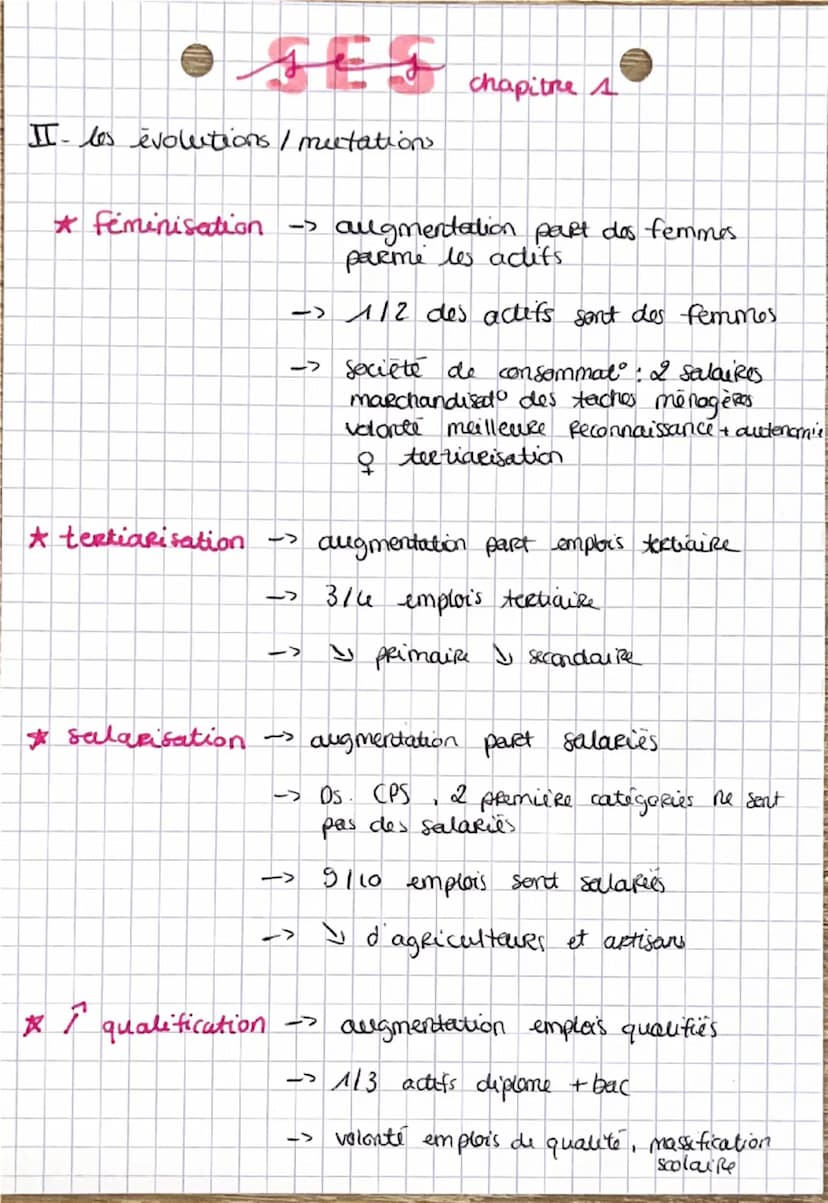 SES
chapitre 1
II- les évolutions / mutations
★ féminisation -> augmentation part des femmes
parmi les actifs
-> 1/2 des actifs sont des femmes
-> société de consommat° : 2 salaires
marchandisat° des taches ménagères
volonté meilleure reconnaissance + autonomie
♀ tertiarisation
★ tertiarisation -> augmentation part emplois tertiaire
-> 3/4 emplois tertiaire
-> ↘ primaire ↘ secondaire
★ salarisation -> augmentation part salariés
-> Ds. CPS, 2 première catégories ne sont
pas des salariés
-> 9/10 emplois sont salariés
-> ↘ d'agriculteurs et artisans
★ ↗ qualification -> augmentation emplois qualifiés
-> 1/3 actifs diplome + bac
-> volonté emplois de qualité, massification
scolaire